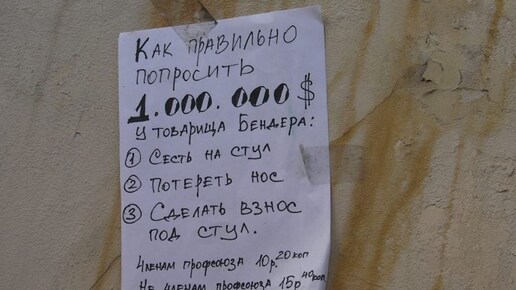 Как правильно
попросить
1.000.000 $
у товарища Бендера:
① Сесть на стул
② Потереть нос
③ Сделать взнос
под стул.
Членам профсоюза 10р.20коп
Не членам профсоюза 15р 40коп.